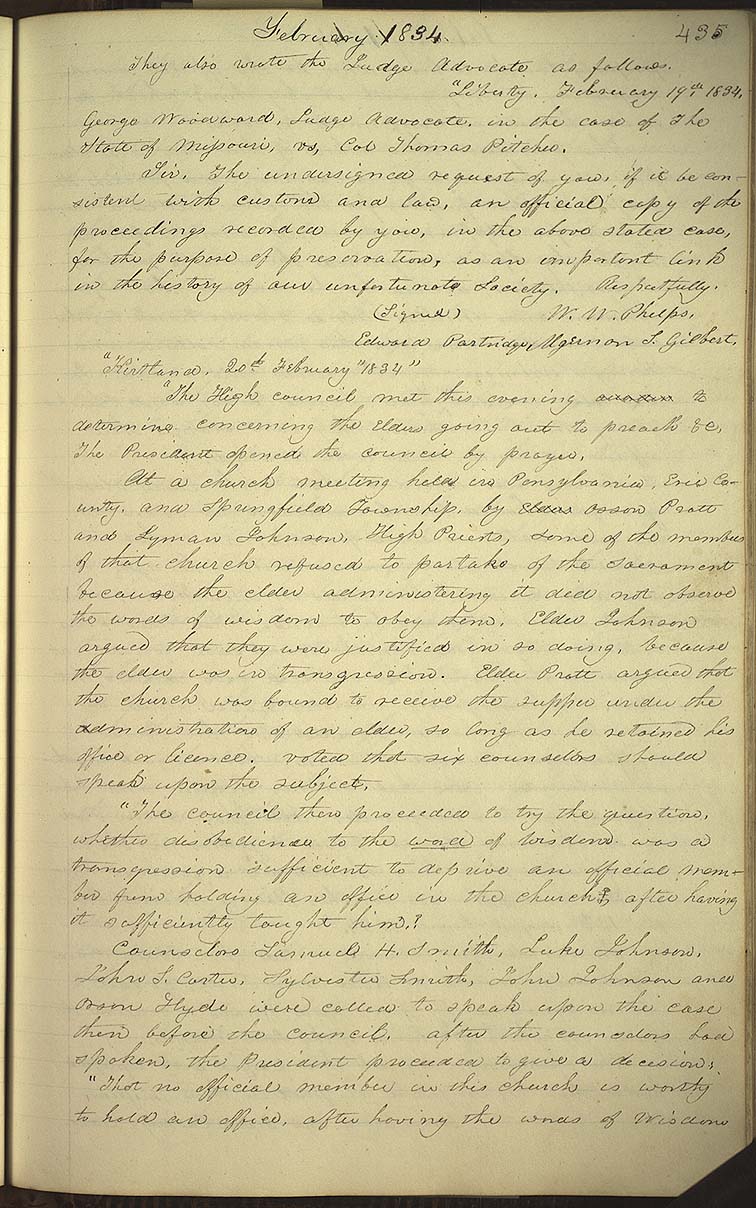 February 1834.
435
They also wrote the Judge Advocate as follows.
"Liberty, February 19th, 1834,
George Woodward, Judge Advocate, in the case of The
State of Missouri, vs, Col Thomas Pitcher.
Sir, The undersigned request of you, if it be con-
sistent with custom and law, an official copy of the
proceedings recorded by you, in the above stated case,
for the purpose of preservation, as an important link
in the history of our unfortunate Society. Respectfully.
(Signed) W. W. Phelps,
Edward Partridge, Algernon S. Gilbert,
"Kirtland, 20th February "1834"
"The High council met this evening to
determine concerning the Elders going out to preach &c,
The President opened the council by prayer.
At a church meeting held in Pensylvania, Erie Co-
unty, and Springfield Township, by Elders Orson Pratt
and Lyman Johnson, High Priests, some of the members
of that church refused to partake of the Sacrament
because the elder administering it did not observe
the words of wisdom to obey them. Elder Johnson
argued that they were justified in so doing, because
the elder was in transgression. Elder Pratt argued that
the church was bound to receive the supper under the
administration of an elder, so long as he retained his
office or licence. voted that six counselors should
speak upon the subject.
"The council then proceeded to try the question,
whether disobedience to the word of wisdom was a
transgression sufficient to deprive an official mem-
ber from holding an office in the church, after having
it sufficiently taught him?
Counselors Samuel H. Smith, Luke Johnson,
John S. Carter, Sylvester Smith, John Johnson and
Orson Hyde were called to speak upon the case
then before the council. after the counselors had
spoken, the President proceeded to give a decision;
"That no official member in this church is worthy
to hold an office, after having the words of Wisdom